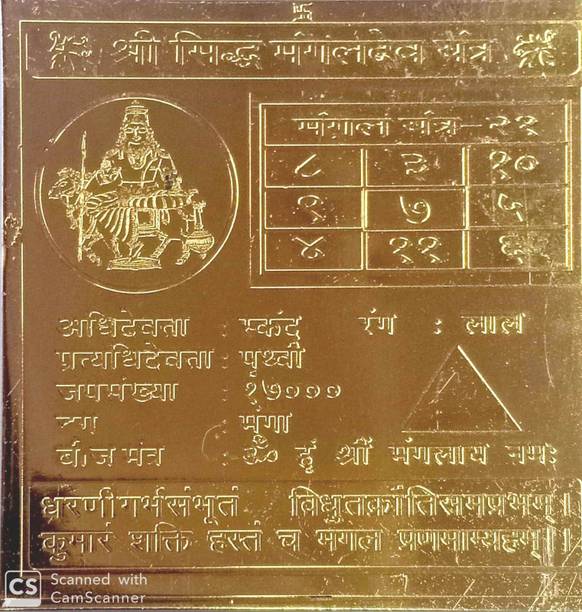 श्री सिद्ध मंगलदेव यंत्र
मंगल यंत्र-२१
८ ३ १०
९ ७ ५
४ ११ ६
अधिदेवता : स्कंद रंग : लाल
प्रत्यधिदेवता : पृथ्वी
जपसंख्या : १७०००
: मूंगा
बीज मंत्र : ॐ हृं श्रीं मंगलाय नमः
धरणीगर्भसंभूतं विधुतक्रांतिसमप्रभम्।
कुमारं शक्ति हस्तं च मंगल प्रणमाम्यहम्।।
CS Scanned with
CamScanner